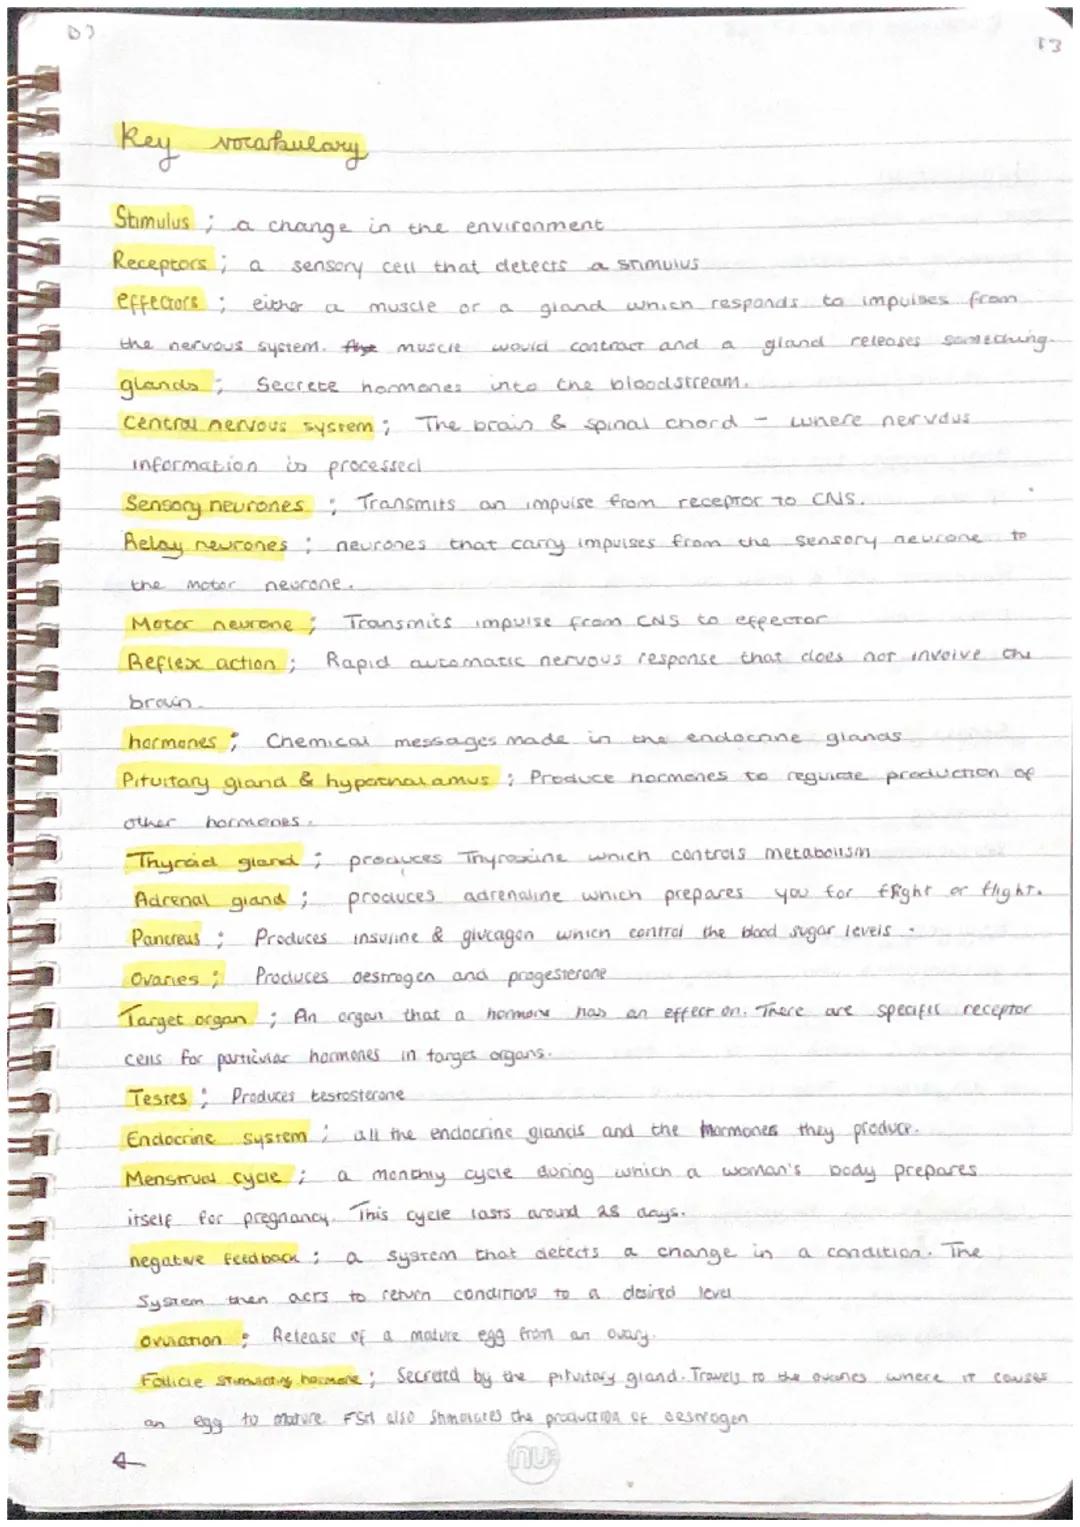 B3
Key vocabulary
Stimulus ; a change in the environment
Receptors ; a sensory cell that detects a stimulus
effectors ; either a muscle or a gland which responds to impulses from
the nervous system. muscle would contract and a gland releases something.
glands ; Secrete hormones into the bloodstream.
Central nervous system ; The brain & spinal chord - where nervous
information is processed
Sensory neurones ; Transmits an impulse from receptor to CNS.
Relay neurones ; neurones that carry impulses from the sensory neurone to
the motor neurone.
Motor neurone ; Transmits impulse from CNS to effector
Reflex action ; Rapid automatic nervous response that does not involve the
brain.
hormones ; Chemical messages made in the endocrine glands
Pituitary gland & hypothalamus ; Produce hormones to regulate production of
other hormones.
Thyroid gland ; produces Thyroxine which controls metabolism
Adrenal gland ; produces adrenaline which prepares you for fight or flight.
Pancreus ; Produces insuline & glucagon which control the blood sugar levels .
Ovaries ; Produces oestrogen and progesterone
Target organ ; An organ that a hormone has an effect on. There are specific receptor
cells for particular hormones in target organs.
Testes ; Produces testosterone
Endocrine system ; all the endocrine glands and the hormones they produce.
Menstrual cycle ; a monthly cycle during which a woman's body prepares
itself for pregnancy. This cycle lasts around 28 days.
negative feedback ; a system that detects a change in a condition. The
System then acts to return conditions to a desired level
ovulation ; Release of a mature egg from an ovary.
Follicle stimulating hormone ; Secreted by the pituitary gland. Travels to the ovaries where it causes
an egg to mature. FSH also stimulates the production of oestrogen
nu